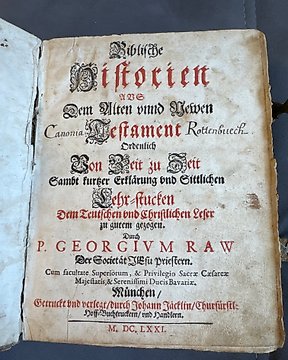 Biblische
Historien
AUS
Dem Alten unnd Newen
Canonia Testament Rottenbuech
Ordenlich
Von Zeit zu Zeit
Sambt kurtzer Erklärung vnd Sittlichen
Lehr-stucken
Dem Teutschen vnd Christlichen Leser
zu gutem gezogen.
Durch
P. GEORGIVM RAW
Der Societät JEsu Priestern.
Cum facultate Superiorum, & Privilegio Sacræ Cæsareæ
Majestatis, & Serenissimi Ducis Bavariæ.
München/
Getruckt vnd verlegt/durch Johann Jäcklin/Churfürstl:
Hoff-Buchtruckern/vnd Handlern.
M. DC. LXXI.